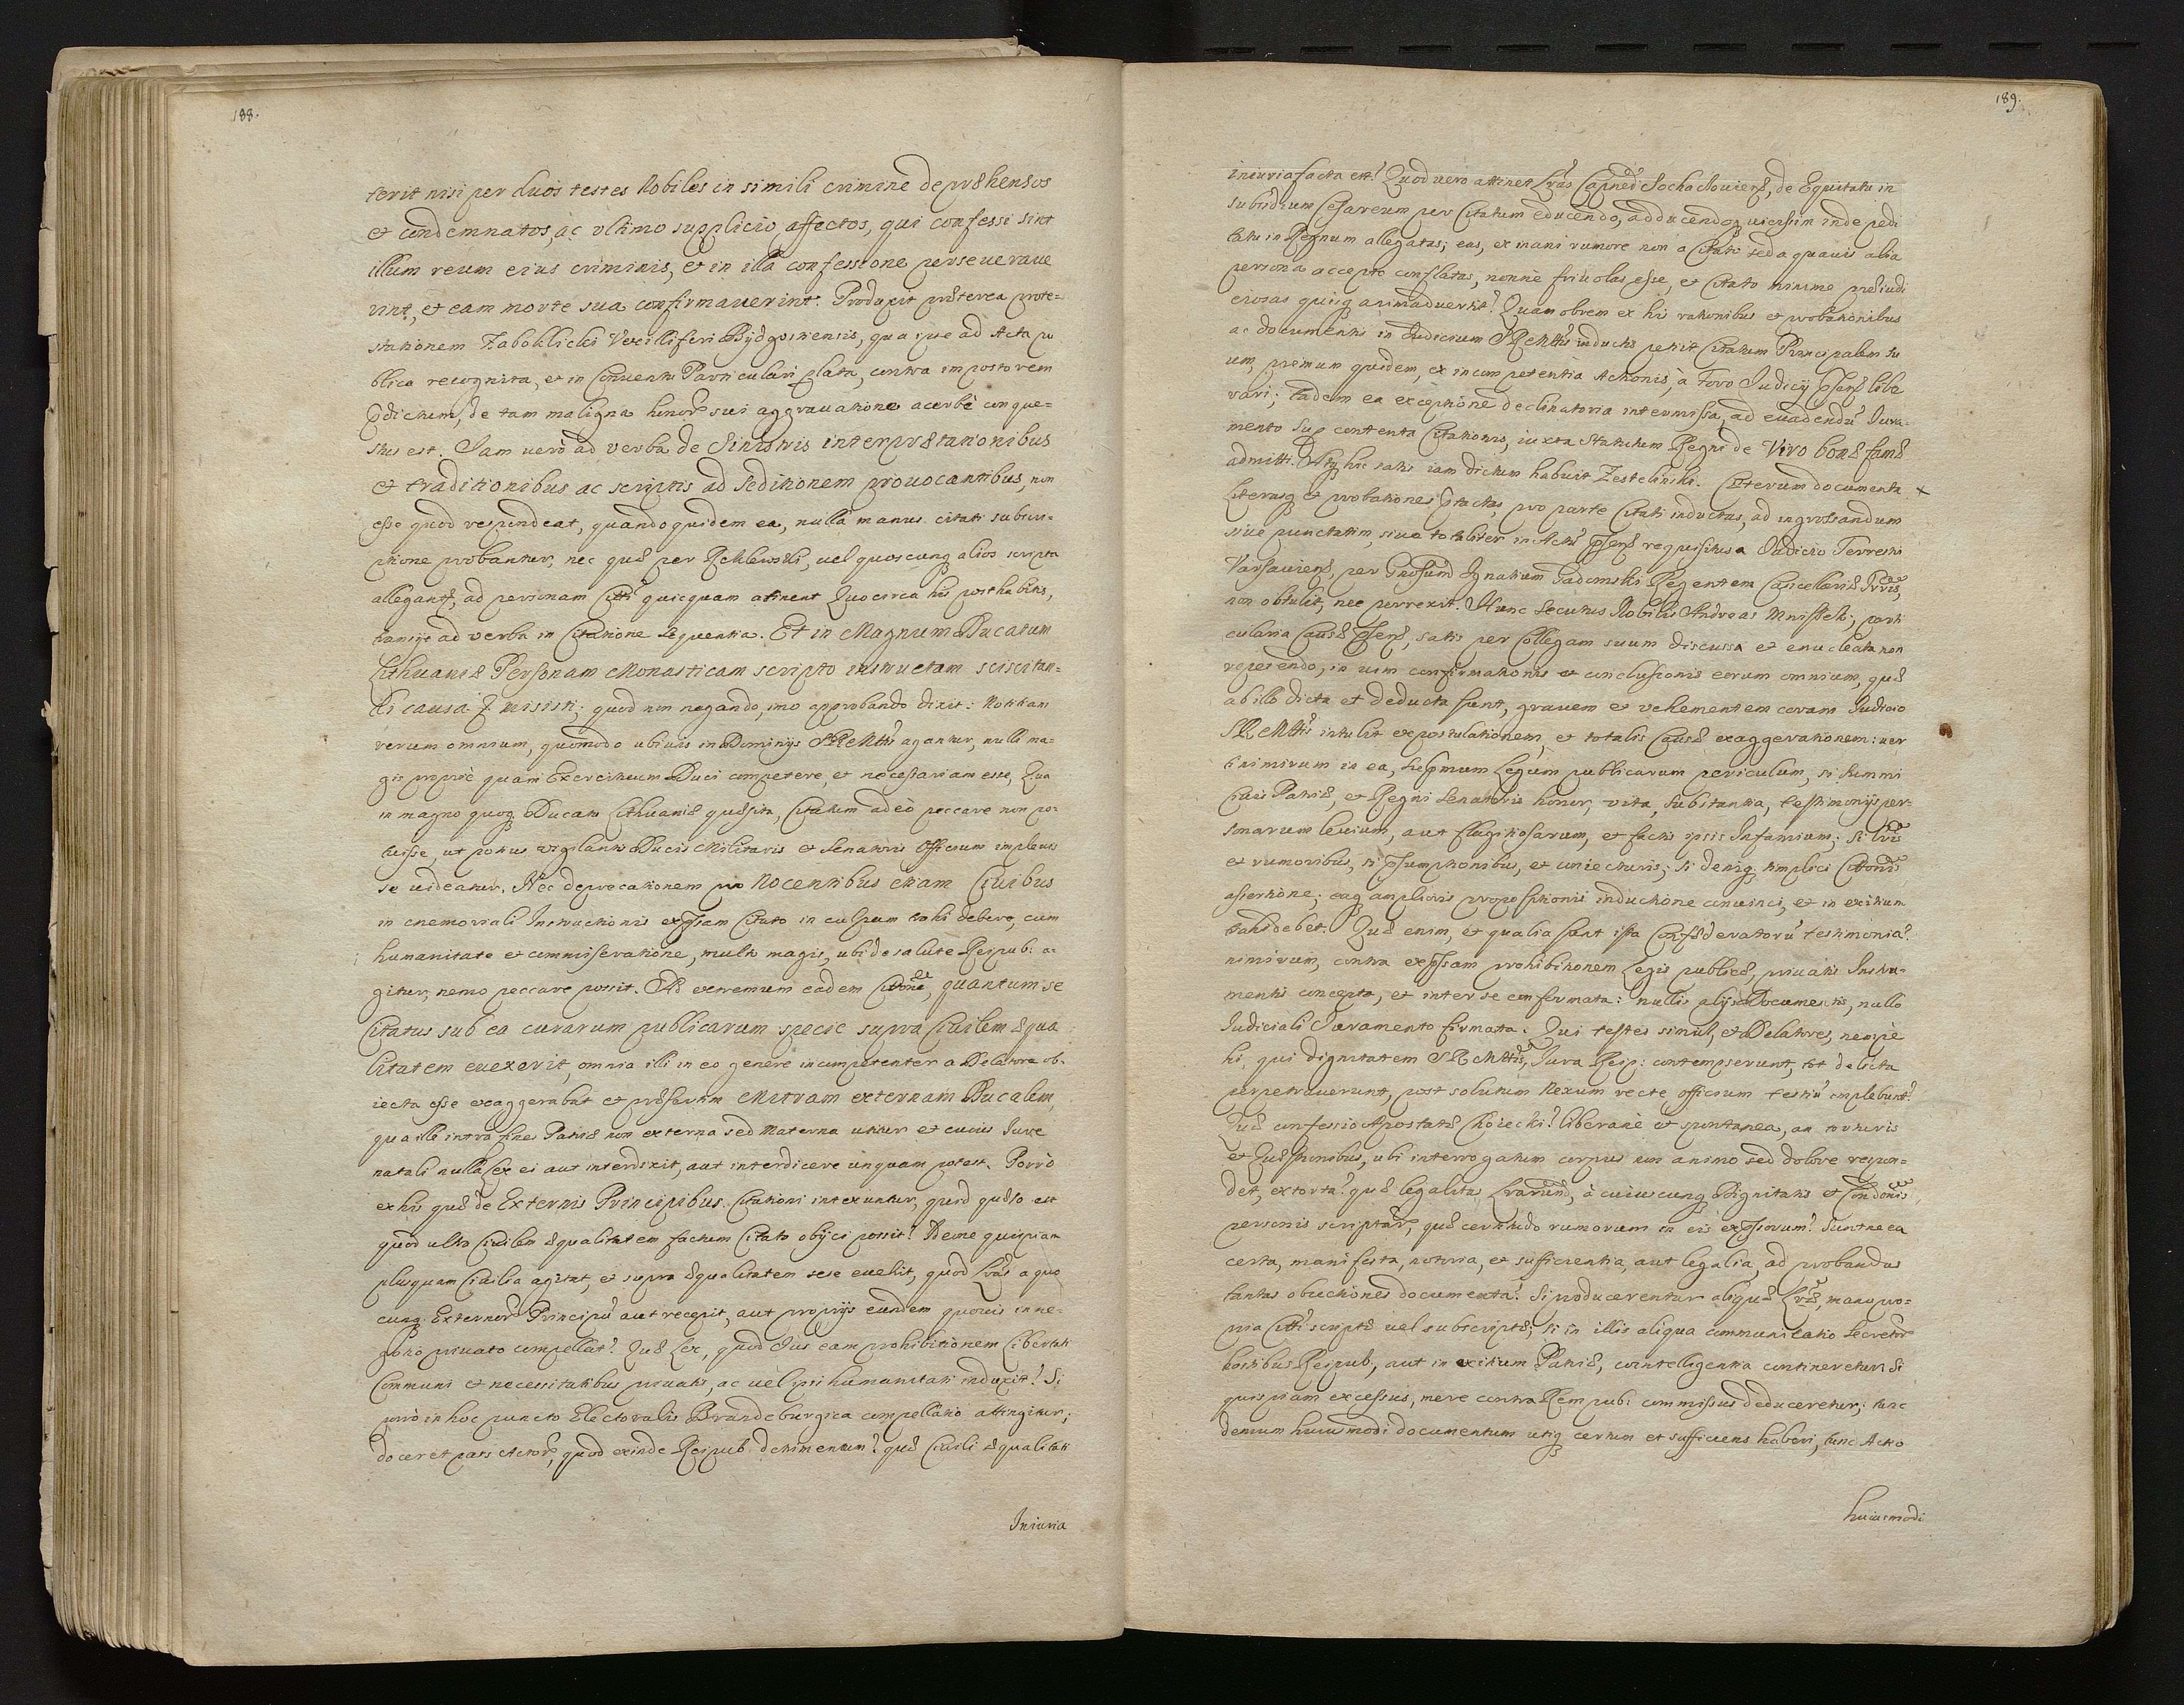 188.
terit nisi per duos testes Nobiles in simili crimine depræhensos
et condemnatos, ac vltimo supplicio affectos, qui confessi sint
illum reum eius criminis, et in illa confessione perseueraue
rint, et eam morte sua confirmauerint. Produxit præterea prote=
stationem Zaboklicki Vexilliferi Bydgostiensis, qua ipse ad Acta pu
blica recognita, et in Conuentu Particulari plata, contra impostorem
pdictum, de tam maligna honoris sui aggrauatione acerbè conque=
stus est. Iam uerò ad verba de Sinistris interprætationibus
et traditionibus ac scriptis ad seditionem prouocantibus, non
esse quod respondeat, quandoquidem ea, nulla manus citati subscri=
ptione probantur, nec quæ per Reklewski, uel quoscunq alios scripta
allegantr, ad personam Citti quicquam atinent Quocirca his posthabitis,
transijt ad verba in Citatione sequentia. Et in Magnum Ducatum
Lithuaniæ Personam Monasticam scripto instructam sciscitan=
di causa misisti; quod non negando, imo approbando dixit: Notitiam
rerum omnium, quomodo ubiuis in Dominijs SRMttis agantur, nulli ma=
gis propriè quam Exercituum Duci competere, et necessariam esse, Qua
in magno quoq Ducatu Lithuaniæ quæsita, Citatum adeò peccare non po=
tuisse, ut potius vigilantis Ducis Militaris et Senatoris Officium impleuis
se uideatur. Nec deprecationem pro Nocentibus etiam Ciuibus
in memoriali Instructionis expssam Citato in culpam trahi debere, cum
humanitate et commiseratione, multo magis, ubi de salute Reipub: a=
gitur, nemo peccare possit. Ad extremum eadem Cittone, quantum se
Citatus sub ea curarum publicarum specie supra Ciuilem æqua
litatem euexerit, omnia illi in eo genere incompetenter a Delatore ob=
iecta esse exaggerabat et præsertim Mitram externam Ducalem,
qua ille intra fines Patriæ non externa sed Materna utitur et cuius Iure
natali nulla Lex ei aut interdixit, aut interdicere unquam potest. Porrò
ex his quæ de Externis Principibus Citationi intexuntur, quid quæso est
quod ultra Ciuilem æqualitatem factum Citato obijci possit? Déne quispiam
plusquam Ciuilia agitat, et supra æqualitatem sese euehit, quòd Lras a quo
cunq Externorum Principũ aut recepit, aut proprijs eundem quouis in ne=
gotio priuato compellat? Quæ Lex, quod Ius eam prohibitionem Libertati
Communi et necessitatibus priuatis, ac uel ipsi humanitati induxit? Si
porrò in hoc puncto Electoralis Brandeburgica compellatio attingitur;
doceret pars Actorea, quod exinde Reipub detrimentum? quæ Ciuili æqualitati
Iniuria
189.
iniuria facta est? Quod uero attinet Lras Capnei Sochaczouiensis, de Equitatu in
subsidium Cesareum per Citatum educendo, adducendoq uicissim inde pedi
tatu in Regnum allegatas; eas, ex inani rumore non a Citato sed a quauis alia
persona accepto conflatas, nonne friuolas esse, et Citato minime præiudi
ciosas quisq animaduertit? Quamobrem ex his rationibus et probationibus
ac documentis in Iudicium SRMttis inductis petijt Citatum Principalem su
um, primum quidem, ex incompetentia Actionis, à Foro Iudicij psentis libe
rari; tadem ea exceptione declinatoria intermissa, ad euadendũ Iura=
mento sup contenta Citationis, iuxta Statutum Regni de Viro bonæ famæ
admitti. Atq hæc satis iam dictum habuit Zestelinski. Cæterum documenta +
Literasq et probationes ptactas, pro parte Citati inductas, ad ingrossandum
siue punctatim, siue totaliter in Actis psens requisitus a Iudicio Terrestri
Varsauiens, per Gnosum Ignatium Gadomski Regentem Cancellariæ
non obtulit, nec porrexit. Hunc secutus Nobilis Andreas Mniszek, parti
cularia Causæ psentis, satis per Collegam suum discussa et enucleata non
repetendo, in uim confirmationis et conclusionis eorum omnium, quæ
ab illo dicta et deducta sunt, grauem et vehementem coram Iudicio
SRMttis intulit expostulationem, et totalis Causæ exaggerationem: uer
ti nimirum in ea, supremum Legum publicarum periculum, si summi
Ciuis Patriæ, et Regni Senatoris honor, vita, substantia, testimonijs per=
sonarum leuium, aut flagitiosarum, et factis ipsis Infamium; Si Lris
et rumoribus, si psumptionibus, et coniecturis; si deniq simplici Cittonis
assertione; eaq amplioris propositionis inductione conuinci, et in exitium
trahi debet. Quæ enim, et qualia sunt ista Confæderatorũ testimonia?
nimirum, contra expssam prohibitionem Legis publicæ, priuatis Instru=
mentis concepta, et inter se confirmata: nullis alijs Documentis, nullo
Iudiciali Iuramento firmata. Qui testes simul, et Delatores, nempè
hi, qui dignitatem SRMttis, Iura Reip: contempserunt, tot delicta
perpetrauerunt, post solutum Nexum recte officium testiũ implebunt?
Quæ confessio Apostatæ Chorecki? liberane et spontanea, an torturis
et Quæstionibus, ubi interrogatum corpus non animo sed dolore respon=
det, extorta? quæ legalitas Lrarum, à cuiuscunq Dignitatis et Condonis
personis scriptarum, quæ certitudo rumorum in eis expssorum? Suntne ea
certa, manifesta, notoria, et sufficientia, aut legalia, ad probandas
tantas obiectiones documenta? Si producerentur aliquæ Lræ, manu pro=
pria Citti scriptæ uel subscriptæ; Si in illis aliqua communicatio Secretorum
hostibus Reipub:, aut in exitium Patriæ, cointelligentia contineretur; Si
quispiam excessus, mere contra Rempub: commissus deduceretur; tunc
demum huiusmodi documentum utiq certum et sufficiens haberi, tunc Actio
huiusmodi